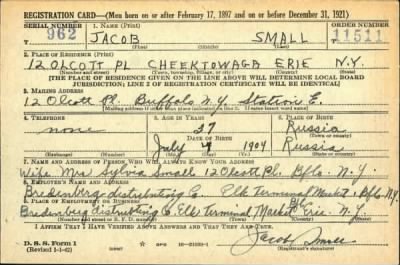 REGISTRATION CARD—(Men born on or after February 17, 1897 and on or before December 31, 1921)
SERIAL NUMBER 1. NAME (Print) ORDER NUMBER
962 JACOB SMALL 11511
(First) (Middle) (Last)
2. PLACE OF RESIDENCE (Print)
12 OLCOTT PL CHEEKTOWAGA ERIE N.Y.
(Number and street) (Town, township, village, or city) (County) (State)
[THE PLACE OF RESIDENCE GIVEN ON THE LINE ABOVE WILL DETERMINE LOCAL BOARD
JURISDICTION; LINE 2 OF REGISTRATION CERTIFICATE WILL BE IDENTICAL]
3. MAILING ADDRESS
12 Olcott Pl. Buffalo N.Y. Station E.
4. TELEPHONE 5. AGE IN YEARS 6. PLACE OF BIRTH
none 37 Russia
DATE OF BIRTH (Town or county)
July 4 1904 Russia
(Exchange) (Number) (Mo.) (Day) (Yr.) (State or country)
7. NAME AND ADDRESS OF PERSON WHO WILL ALWAYS KNOW YOUR ADDRESS
Wife Mrs Sylvia Small 12 Olcott Pl. Bflo. N.Y.
8. EMPLOYER'S NAME AND ADDRESS
Bredenberg distributing C. Elk Terminal Market Bflo N.Y.
9. PLACE OF EMPLOYMENT OR BUSINESS
Bredenberg distributing C. Elk Terminal Market Bfl Erie N.Y.
(Number and street or R. F. D. number) (Town) (County) (State)
I AFFIRM THAT I HAVE VERIFIED ABOVE ANSWERS AND THAT THEY ARE TRUE.
D. S. S. Form 1
(Revised 1-1-42) (over) Jacob Small
(Registrant's signature)